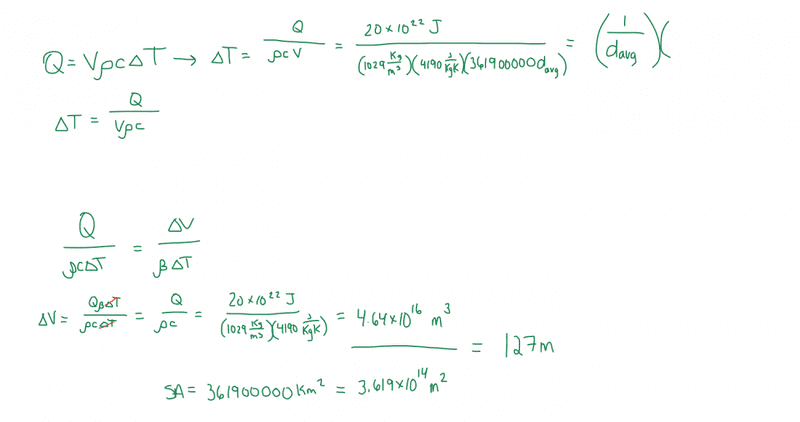 Q = VρcΔT → ΔT = Q / ρcV = 20×10²² J / (1029 Kg/m³)(4190 J/KgK)(361900000d_avg) = (1/d_avg)(
ΔT = Q / Vρc
Q / ρcΔT = ΔV / βΔT
ΔV = QβΔT / ρcΔT = Q / ρc = 20×10²² J / (1029 Kg/m³)(4190 J/KgK) = 4.64×10¹⁶ m³ = 127m
SA = 361900000 Km² = 3.619×10¹⁴ m²